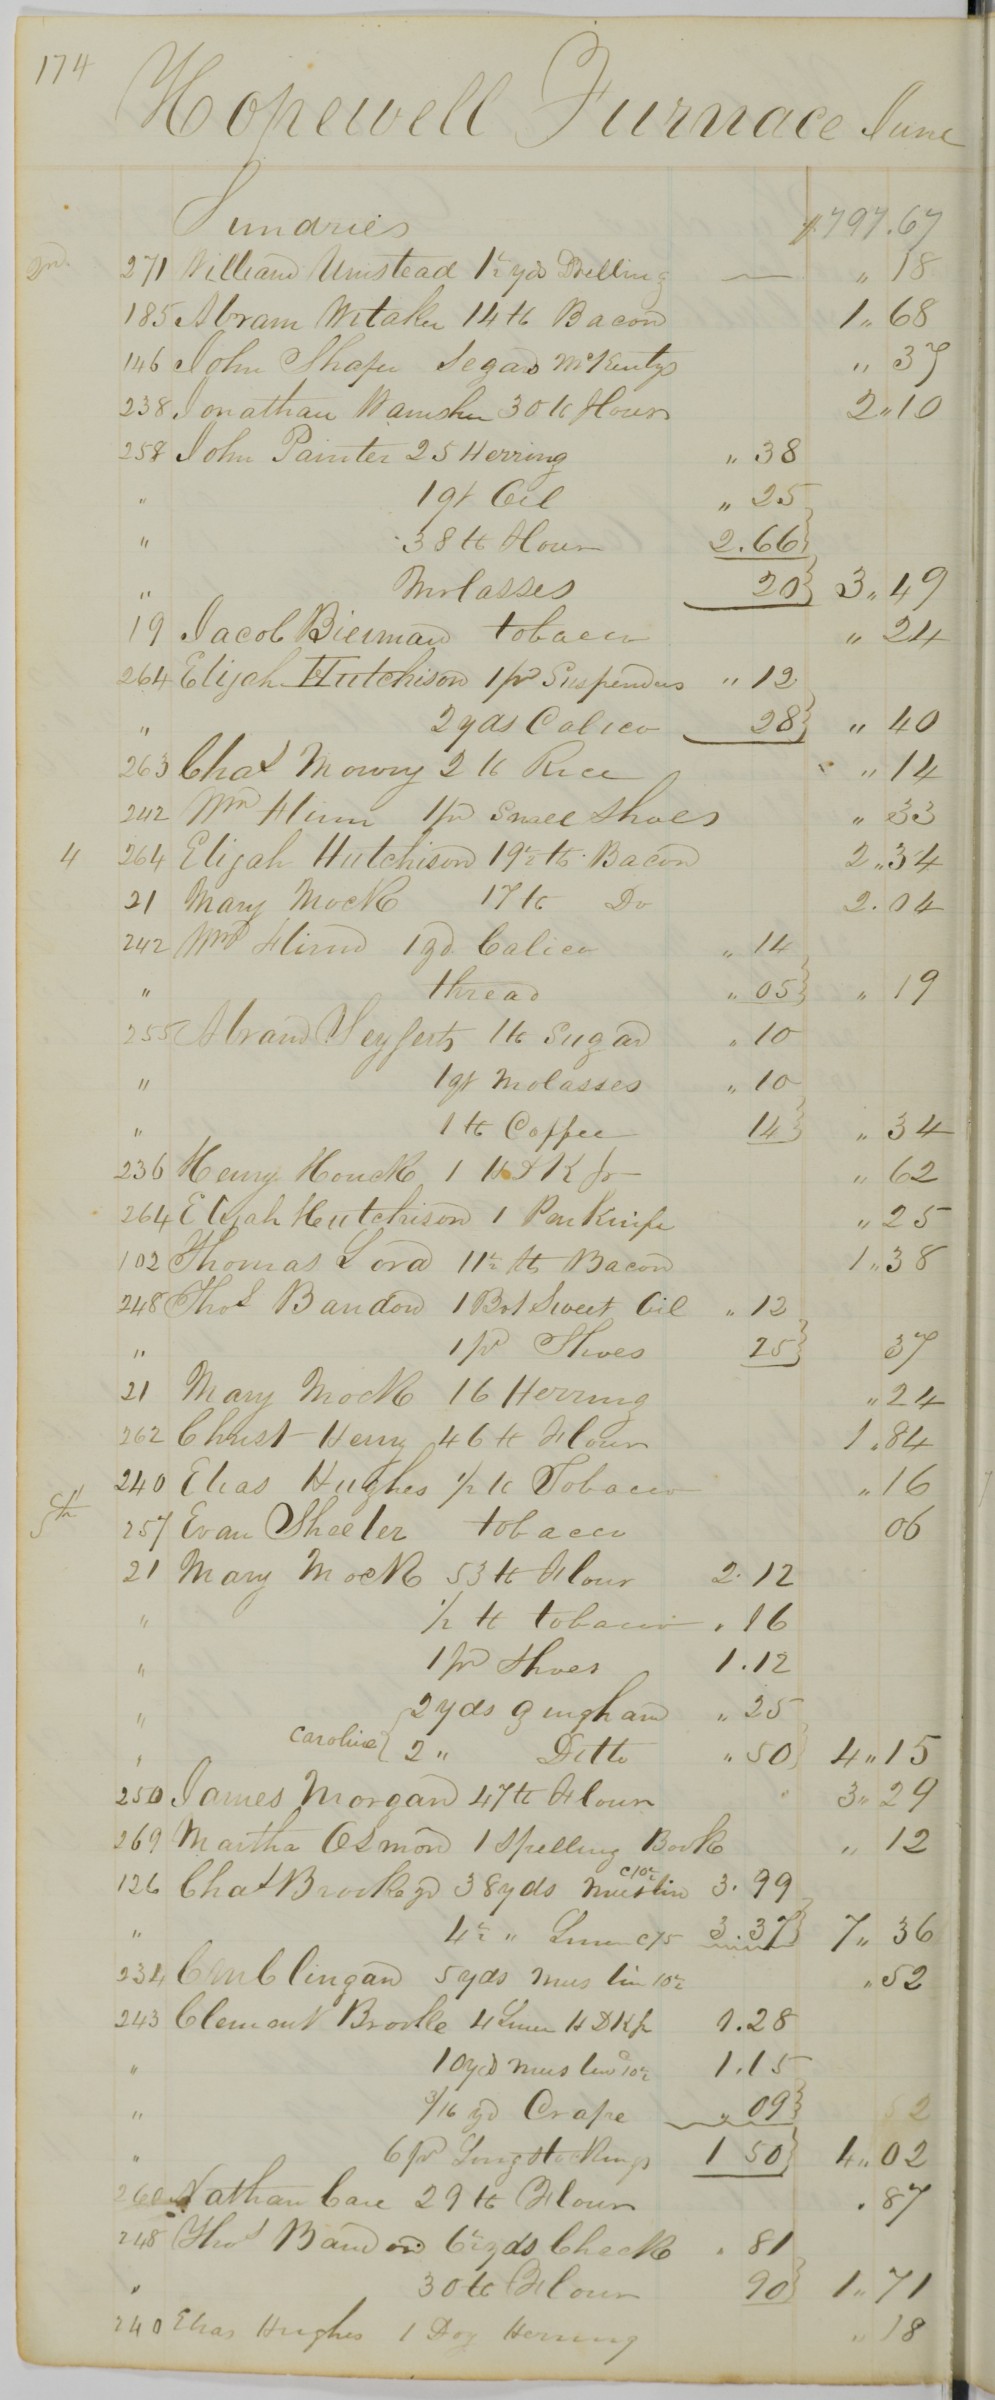 174
Hopewell Furnace June
Sundries $797.67
2nd 271 William Umstead 1½ yds Drilling — " 18
185 Abram Witaker 14 lb Bacon 1" 68
146 John Shafer Segars McKentys " 37
238 Jonathan Wamsher 30 lb Flour 2"10
258 John Painter 25 Herring " 38
" 1 qt Oil " 25
" 38 lb Flour 2.66
" Molasses 20 3" 49
19 Jacob Bierman tobacco " 24
264 Elijah Hutchison 1 pr Suspenders " 12
" 2 yds Calico 28 " 40
263 Chas Mowry 2 lb Rice " 14
242 Wm Flinn 1 pr Small Shoes " 33
4 264 Elijah Hutchison 19½ lb Bacon 2"34
21 Mary Mock 17 lb Do 2.04
242 Wm Flinn 1 yd Calico " 14
" thread " 05 " 19
255 Abram Seyfert 1 lb Sugar " 10
" 1 qt Molasses " 10
" 1 lb Coffee 14 " 34
236 Henry Houck 1 H D K f " 62
264 Elijah Hutchison 1 Pen Knife " 25
102 Thomas Lord 11½ lb Bacon 1"38
248 Thos Bandon 1 Bot Sweet Oil " 12
" 1 pr Shoes 25 37
21 Mary Mock 16 Herring " 24
262 Christ Henry 46 lb Flour 1.84
240 Elias Hughes 1/2 lb Tobacco " 16
5th 257 Evan Sheeler tobacco 06
21 Mary Mock 53 lb Flour 2.12
" 1/2 lb tobacco " 16
" 1 pr Shoes 1.12
" 2 yds gingham " 25
" Caroline 2 " Ditto " 50 4"15
250 James Morgan 47 lb Flour 3"29
269 Martha Osmond 1 Spelling Book " 12
126 Chas Brooke yd 38 yds Muslin c10½ 3.99
" 4½ " Linen c75 3.37 7" 36
234 Clingan 5 yds Muslin 10½ " 52
243 Clement Brooke 4 Linen H D K f 1.28
" 10 yds Muslin c10½ 1.15
" 3/16 yd Crape " 09 52
" 6 pr Long Stockings 1 50 4" 02
260 Nathan Care 29 lb Flour . 87
248 Thos Bandon 6½ yds Check " 81
" 30 lb Flour 90 1" 71
240 Elias Hughes 1 Doz Herring " 18